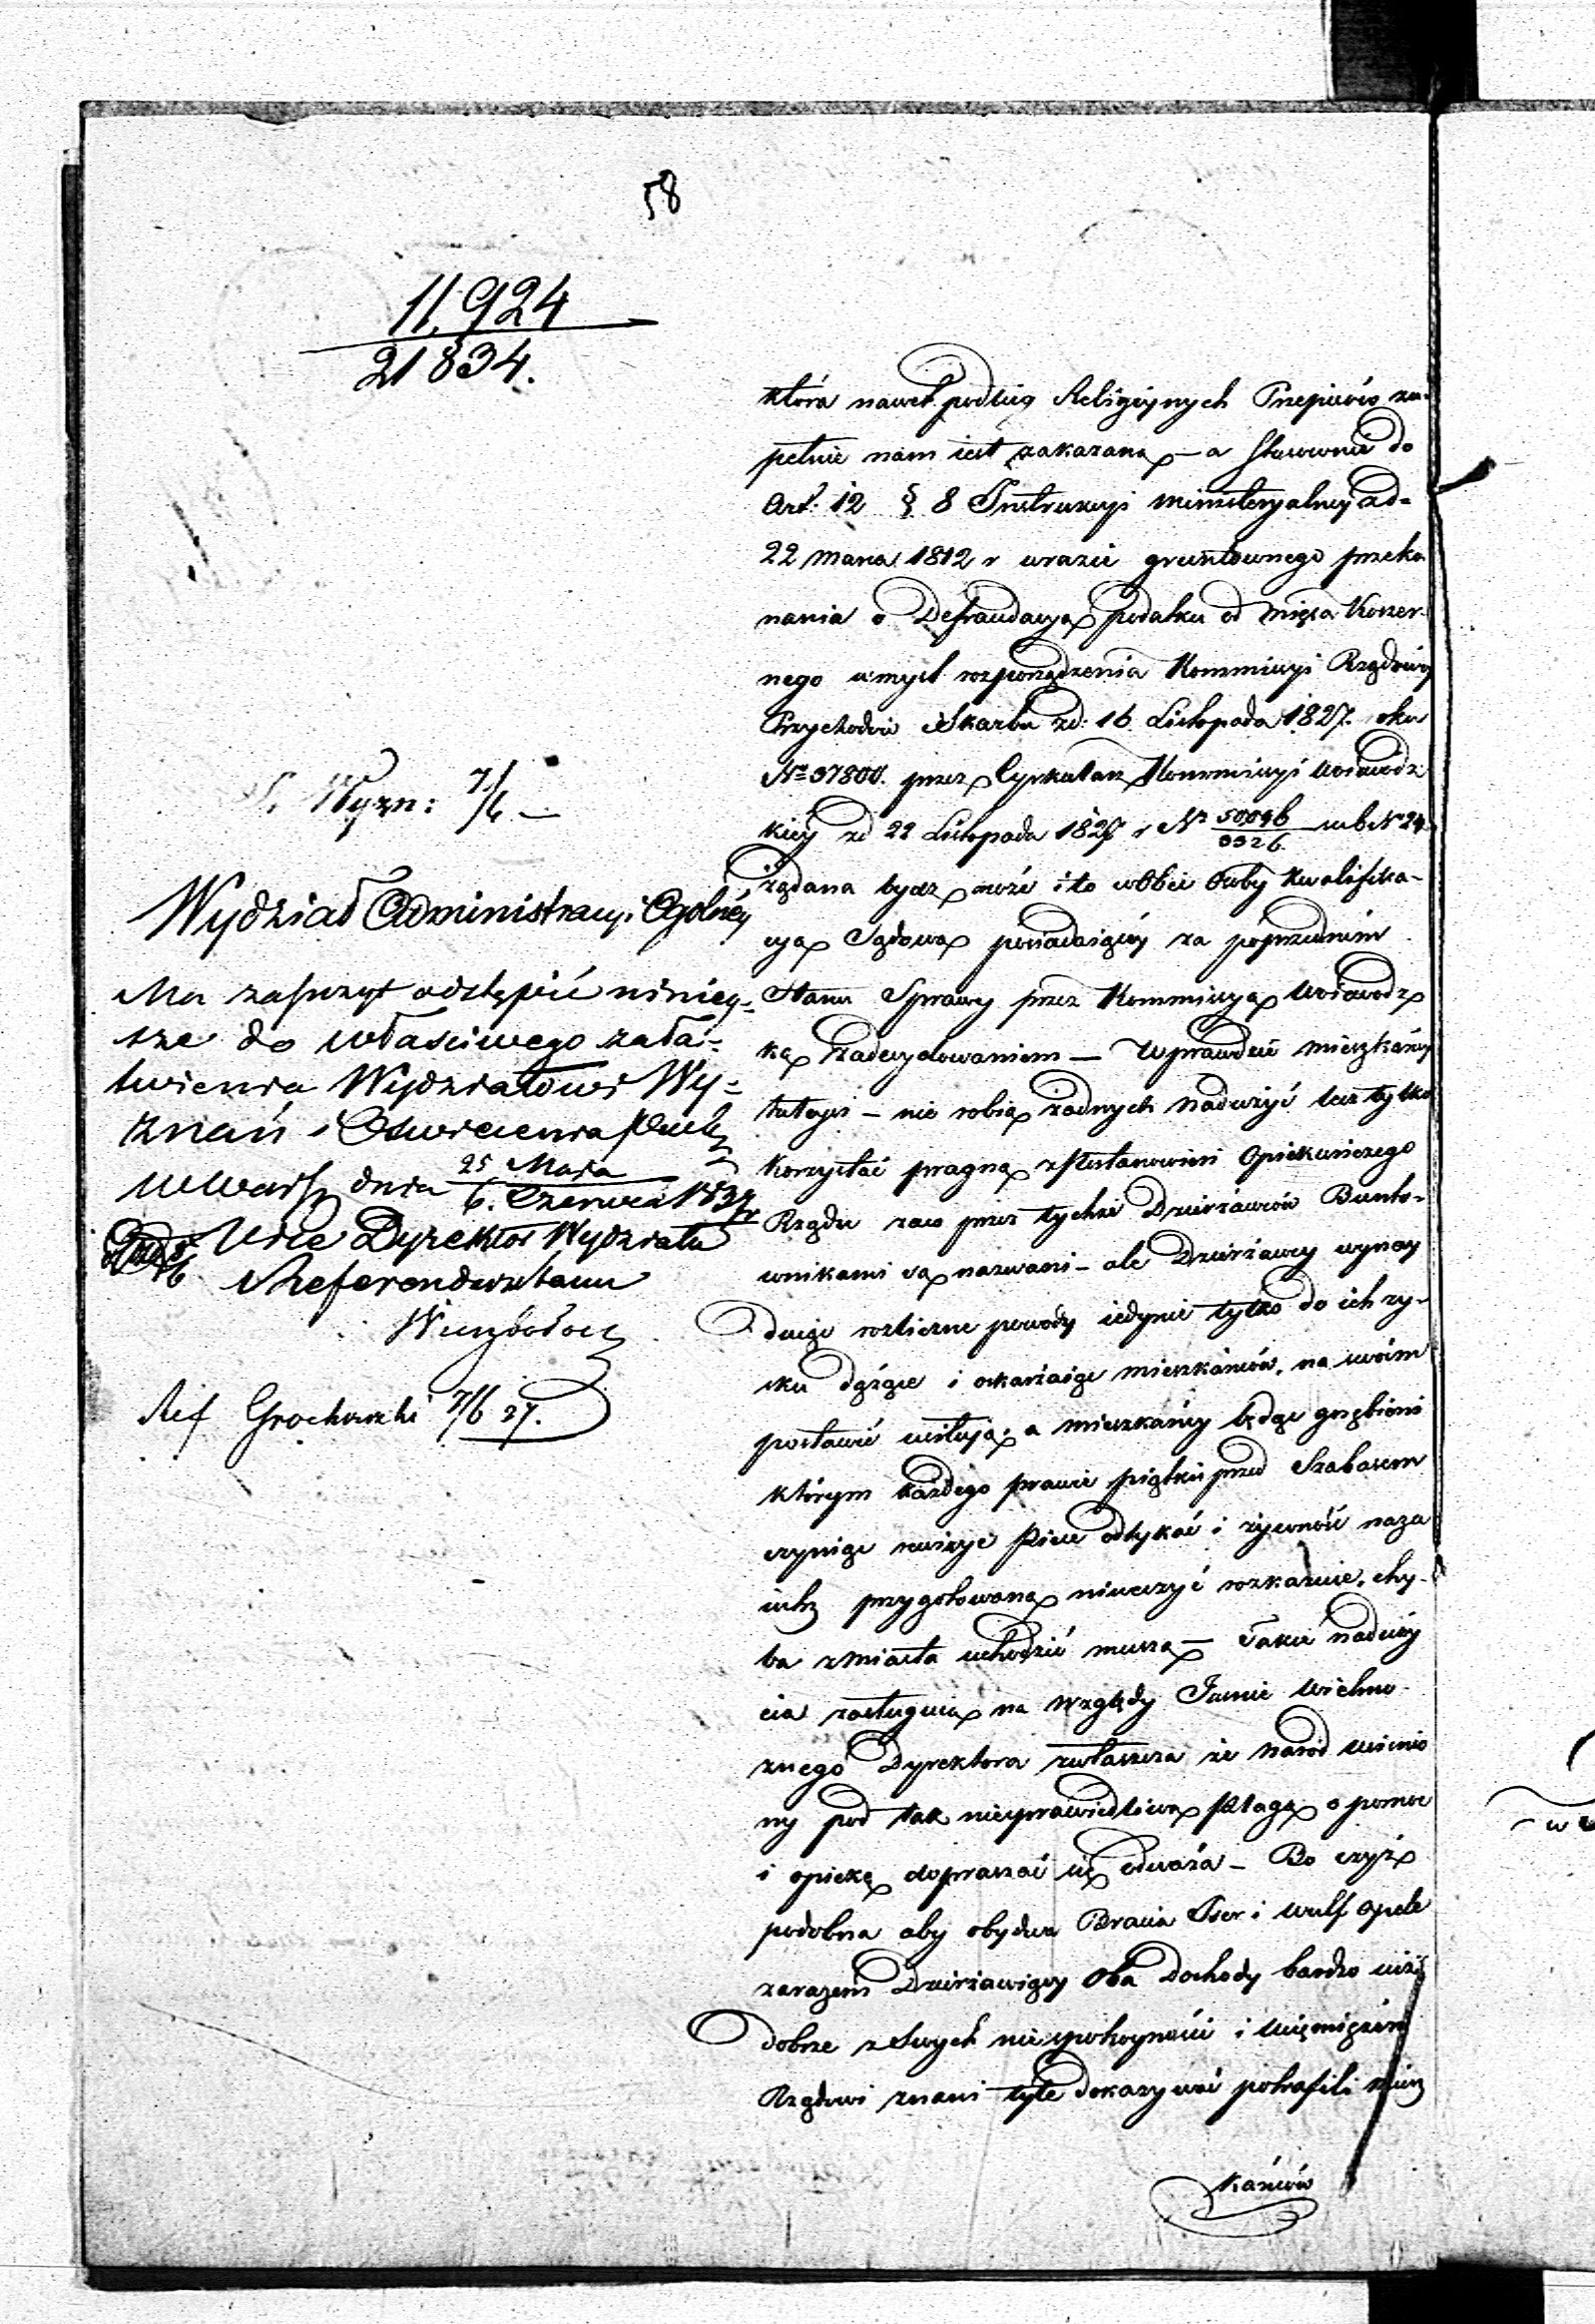 58
11,924
21834.
S. Wyzn: 7/6 —
Wydział Administracyi Ogolnéy
Ma zaszczyt odstąpić niniey-
sze do właściwego zała-
twienia Wydziałowi Wy-
znań i Oswiecenia Publ
w Warsz dnia 25 Maja
6. Czerwca 1837 r
Vice Dyrektor Wydziału
Referendarz Stanu
Ref Grochowski 7/6 37.
która nawet podług Religiynych Przepisów zu-
pełnie nam iest zakazaną — a stosownie do
Art. 12 § 8 Instrukcyi ministeryalney zd=
22 Marca 1812 r w razie gruntownego przeko
nania o Defraudacyą podatku od mięsa Koszer-
nego w myśl rozporządzenia Kommissyi Rządowey
Przychodów i Skarbu zd: 16 Listopada 1827. roku
Nr 37800. przez Cyrkularz Kommissyi Woiewodz
kiey zd 22 Listopada 1827 r Nr 50096
3326. Nr 24
żądana bydz może i to w Obec Osoby kwalifika-
cyą Sądową posiadaiącey za poprzednim
Stanu Sprawy przez Kommissyą Woiewodz
ką zadecydowaniem — Wprawdzie mieszkańcy
tuteysi — nie robią żadnych nadużyć lecz tylko
korzystać pragną z Postanowień Opiekuńczego
Rządu zaco przez tychże Dzierżawców Bunto-
wnikami są nazwani — ale Dzierżawcy wynay
duiąc rozliczne powody iedynie tylko do ich zy-
sku dążące i oskarżaiąc mieszkańców, na swoim
postawić usiłują, a mieszkańcy będąc gnębieni
którym każdego prawie piątku przed Szabasem
czyniąc rewizye Piece odtykać i żywność na za
iutrz przygotowaną niweczyć rozkazuie, chy-
ba z miasta uchodzić muszą — Takie naduży
cia zasługuią na względy Jasnie Wielmo-
żnego Dyrektora zwłaszcza że Naród uciśnio
ny pod tak niesprawiedliwą plagą o pomoc
i opiekę dopraszać się odważa — Bo czyż
podobna aby obydwa Bracia Iser i Wulf Opele
zarazem Dzierżawiący Oba Dochody bardzo
dobrze z Swych niespokoyności i
Rządowi znani tyle dokazywać potrafili miesz
kańców